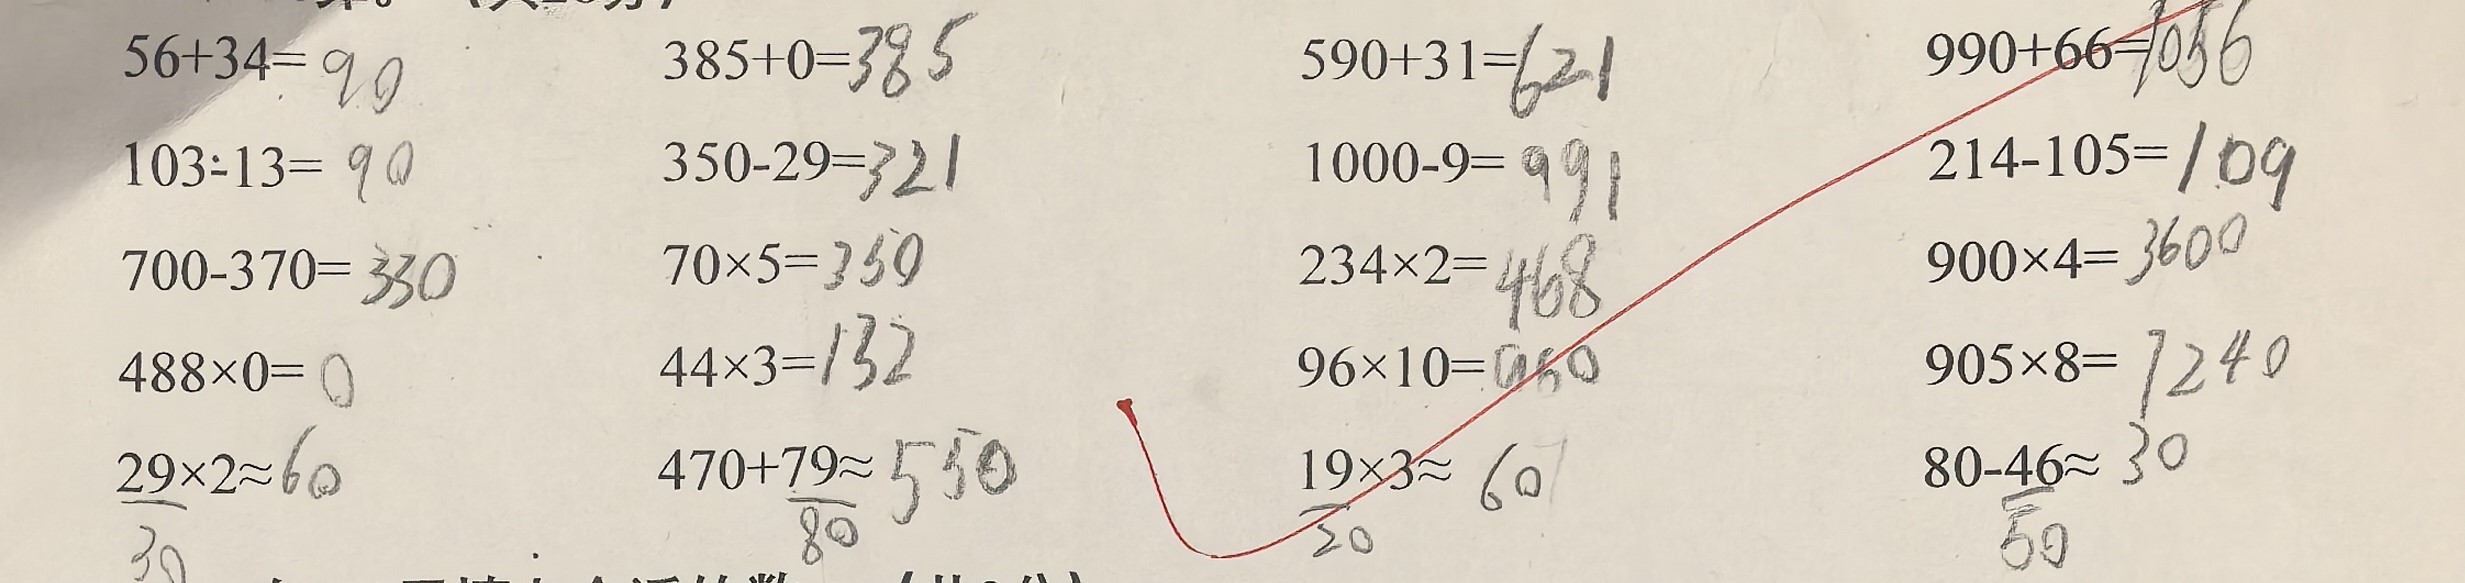 56+34=90 385+0=385 590+31=621 990+66=1056
103÷13= 90 350-29=321 1000-9= 991 214-105= 109
700-370= 330 70×5=350 234×2=468 900×4= 3600
488×0= 0 44×3=132 96×10=960 905×8= 7240
29×2≈60 470+79≈ 550 19×3≈ 60 80-46≈ 30
30 80 20 50